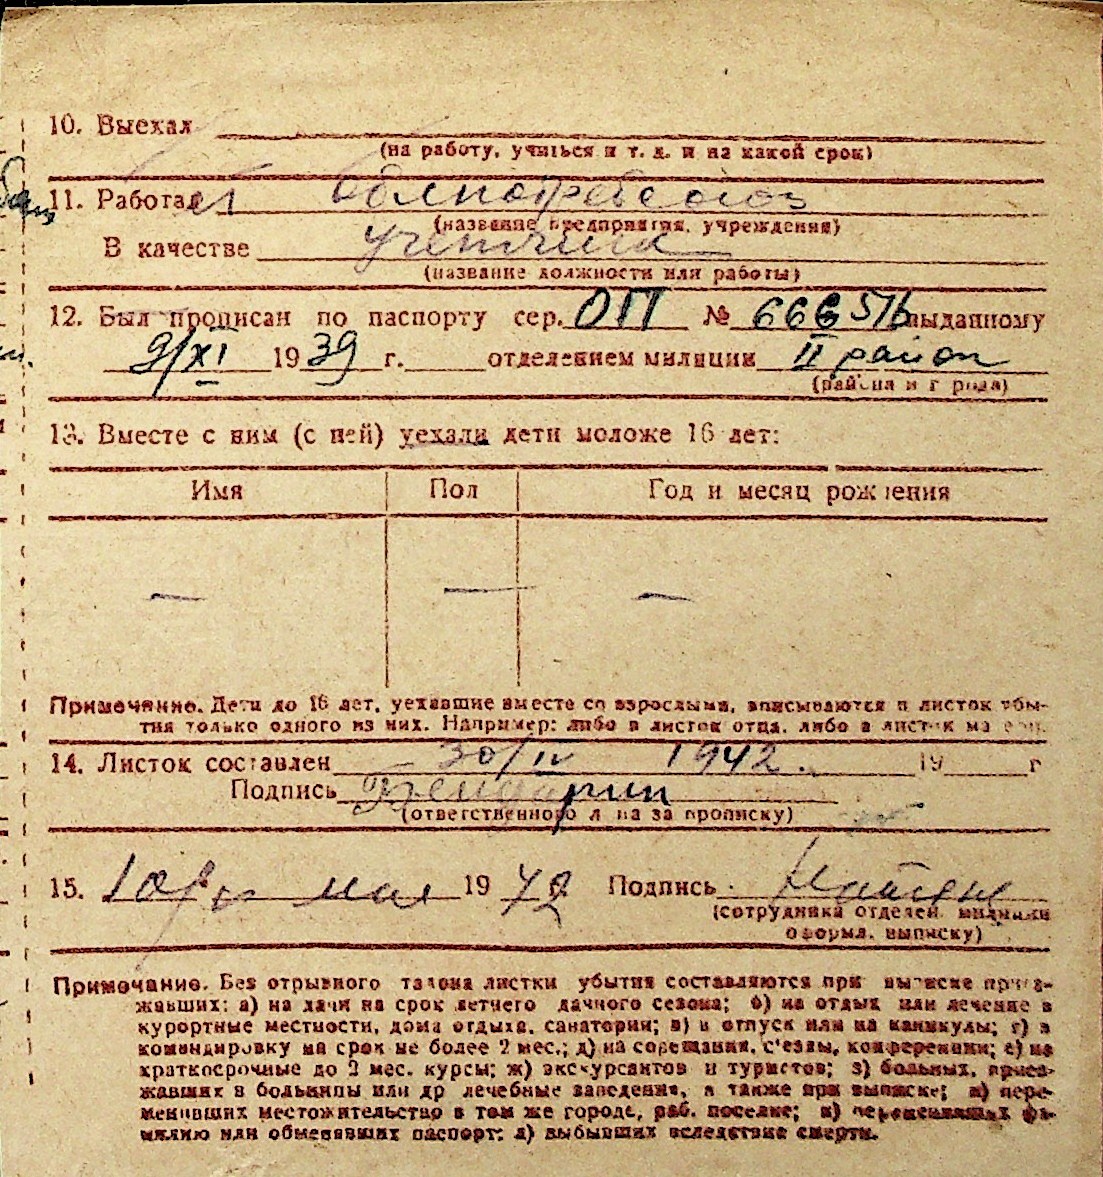 10. Выехал
(на работу, учиться и т. д. и на какой срок)
11. Работает Облпотребсоюз
(название предприятия, учреждения)
В качестве учетчика
(название должности или работы)
12. Был прописан по паспорту сер. ОП № 666516 выданному
9/XI 1939 г. отделением милиции II район
(района и города)
13. Вместе с ним (с ней) уехали дети моложе 16 лет:
Имя Пол Год и месяц рождения
— — —
Примечание. Дети до 16 лет, уехавшие вместе со взрослыми, вписываются в листок убы-
тия только одного из них. Например: либо в листок отца, либо в листок матери.
14. Листок составлен 30/IV 1942. 19 г
Подпись
(ответственного лица за прописку)
15. мая 1942 Подпись
(сотрудника отделен. милиции
оформл. выписку)
Примечание. Без отрывного талона листки убытия составляются при выписке приез-
жавших: а) на дачи на срок летнего дачного сезона; б) на отдых или лечение в
курортные местности, дома отдыха, санатории; в) в отпуск или на каникулы; г) в
командировку на срок не более 2 мес.; д) на совещания, с'езды, конференции; е) на
краткосрочные до 2 мес. курсы; ж) экскурсантов и туристов; з) больных, приез-
жавших в больницы или др лечебные заведения, а также при выписке; и) пере-
менивших местожительство в том же городе, раб. поселке; к) переменивших фа-
милию или обменявших паспорт; л) выбывших вследствие смерти.